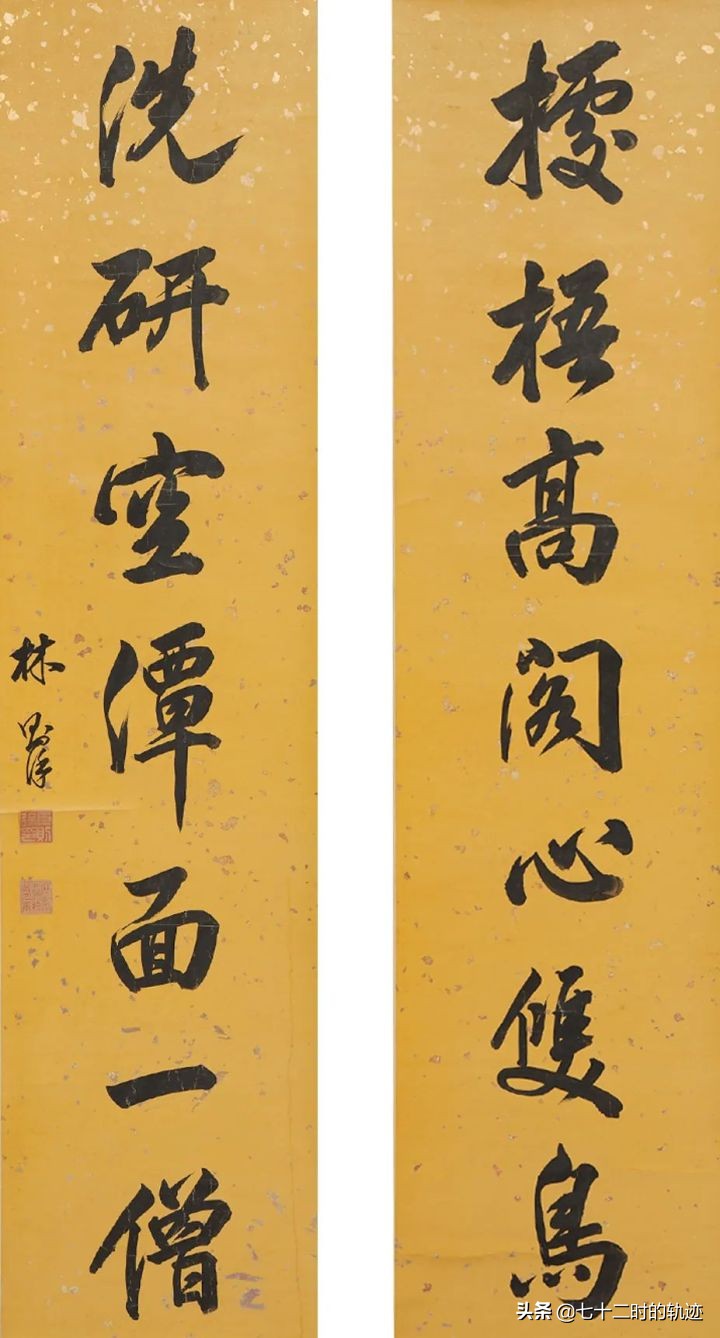 據梧高閣心雙鳥
洗研空潭面一僧
林則徐
头条 @七十二时的轨迹